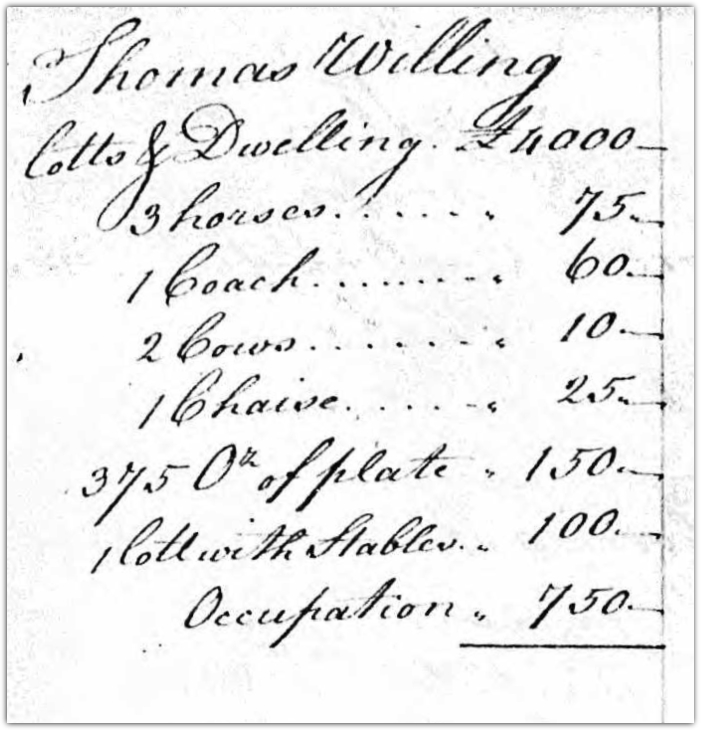 Thomas Willing
Lotts & Dwelling. £4000—
3 horses...... " 75"—
1 Coach........ " 60"—
2 Cows........ " 10"—
1 Chaise...... " 25"—
375 Oz of plate " 150"—
1 Lott with Stables.. " 100"—
Occupation " 750"—